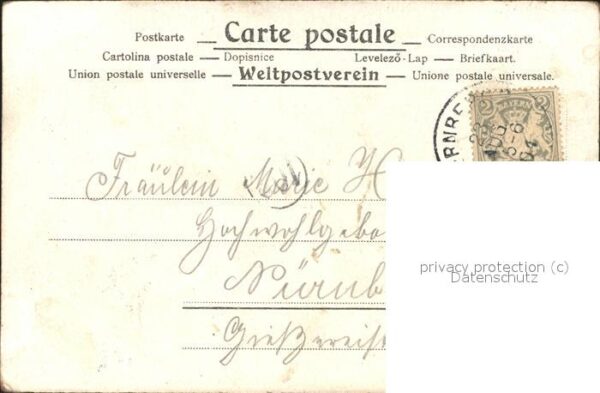 Postkarte — Carte postale — Correspondenzkarte
Cartolina postale — Dopisnice Levelező-Lap — Briefkaart.
Union postale universelle — Weltpostverein — Unione postale universale.
2 BAYERN
23
AUG 5-6
04
Fräulein Marie H
Hochwohlgebo
Nürnb
privacy protection (c)
Datenschutz